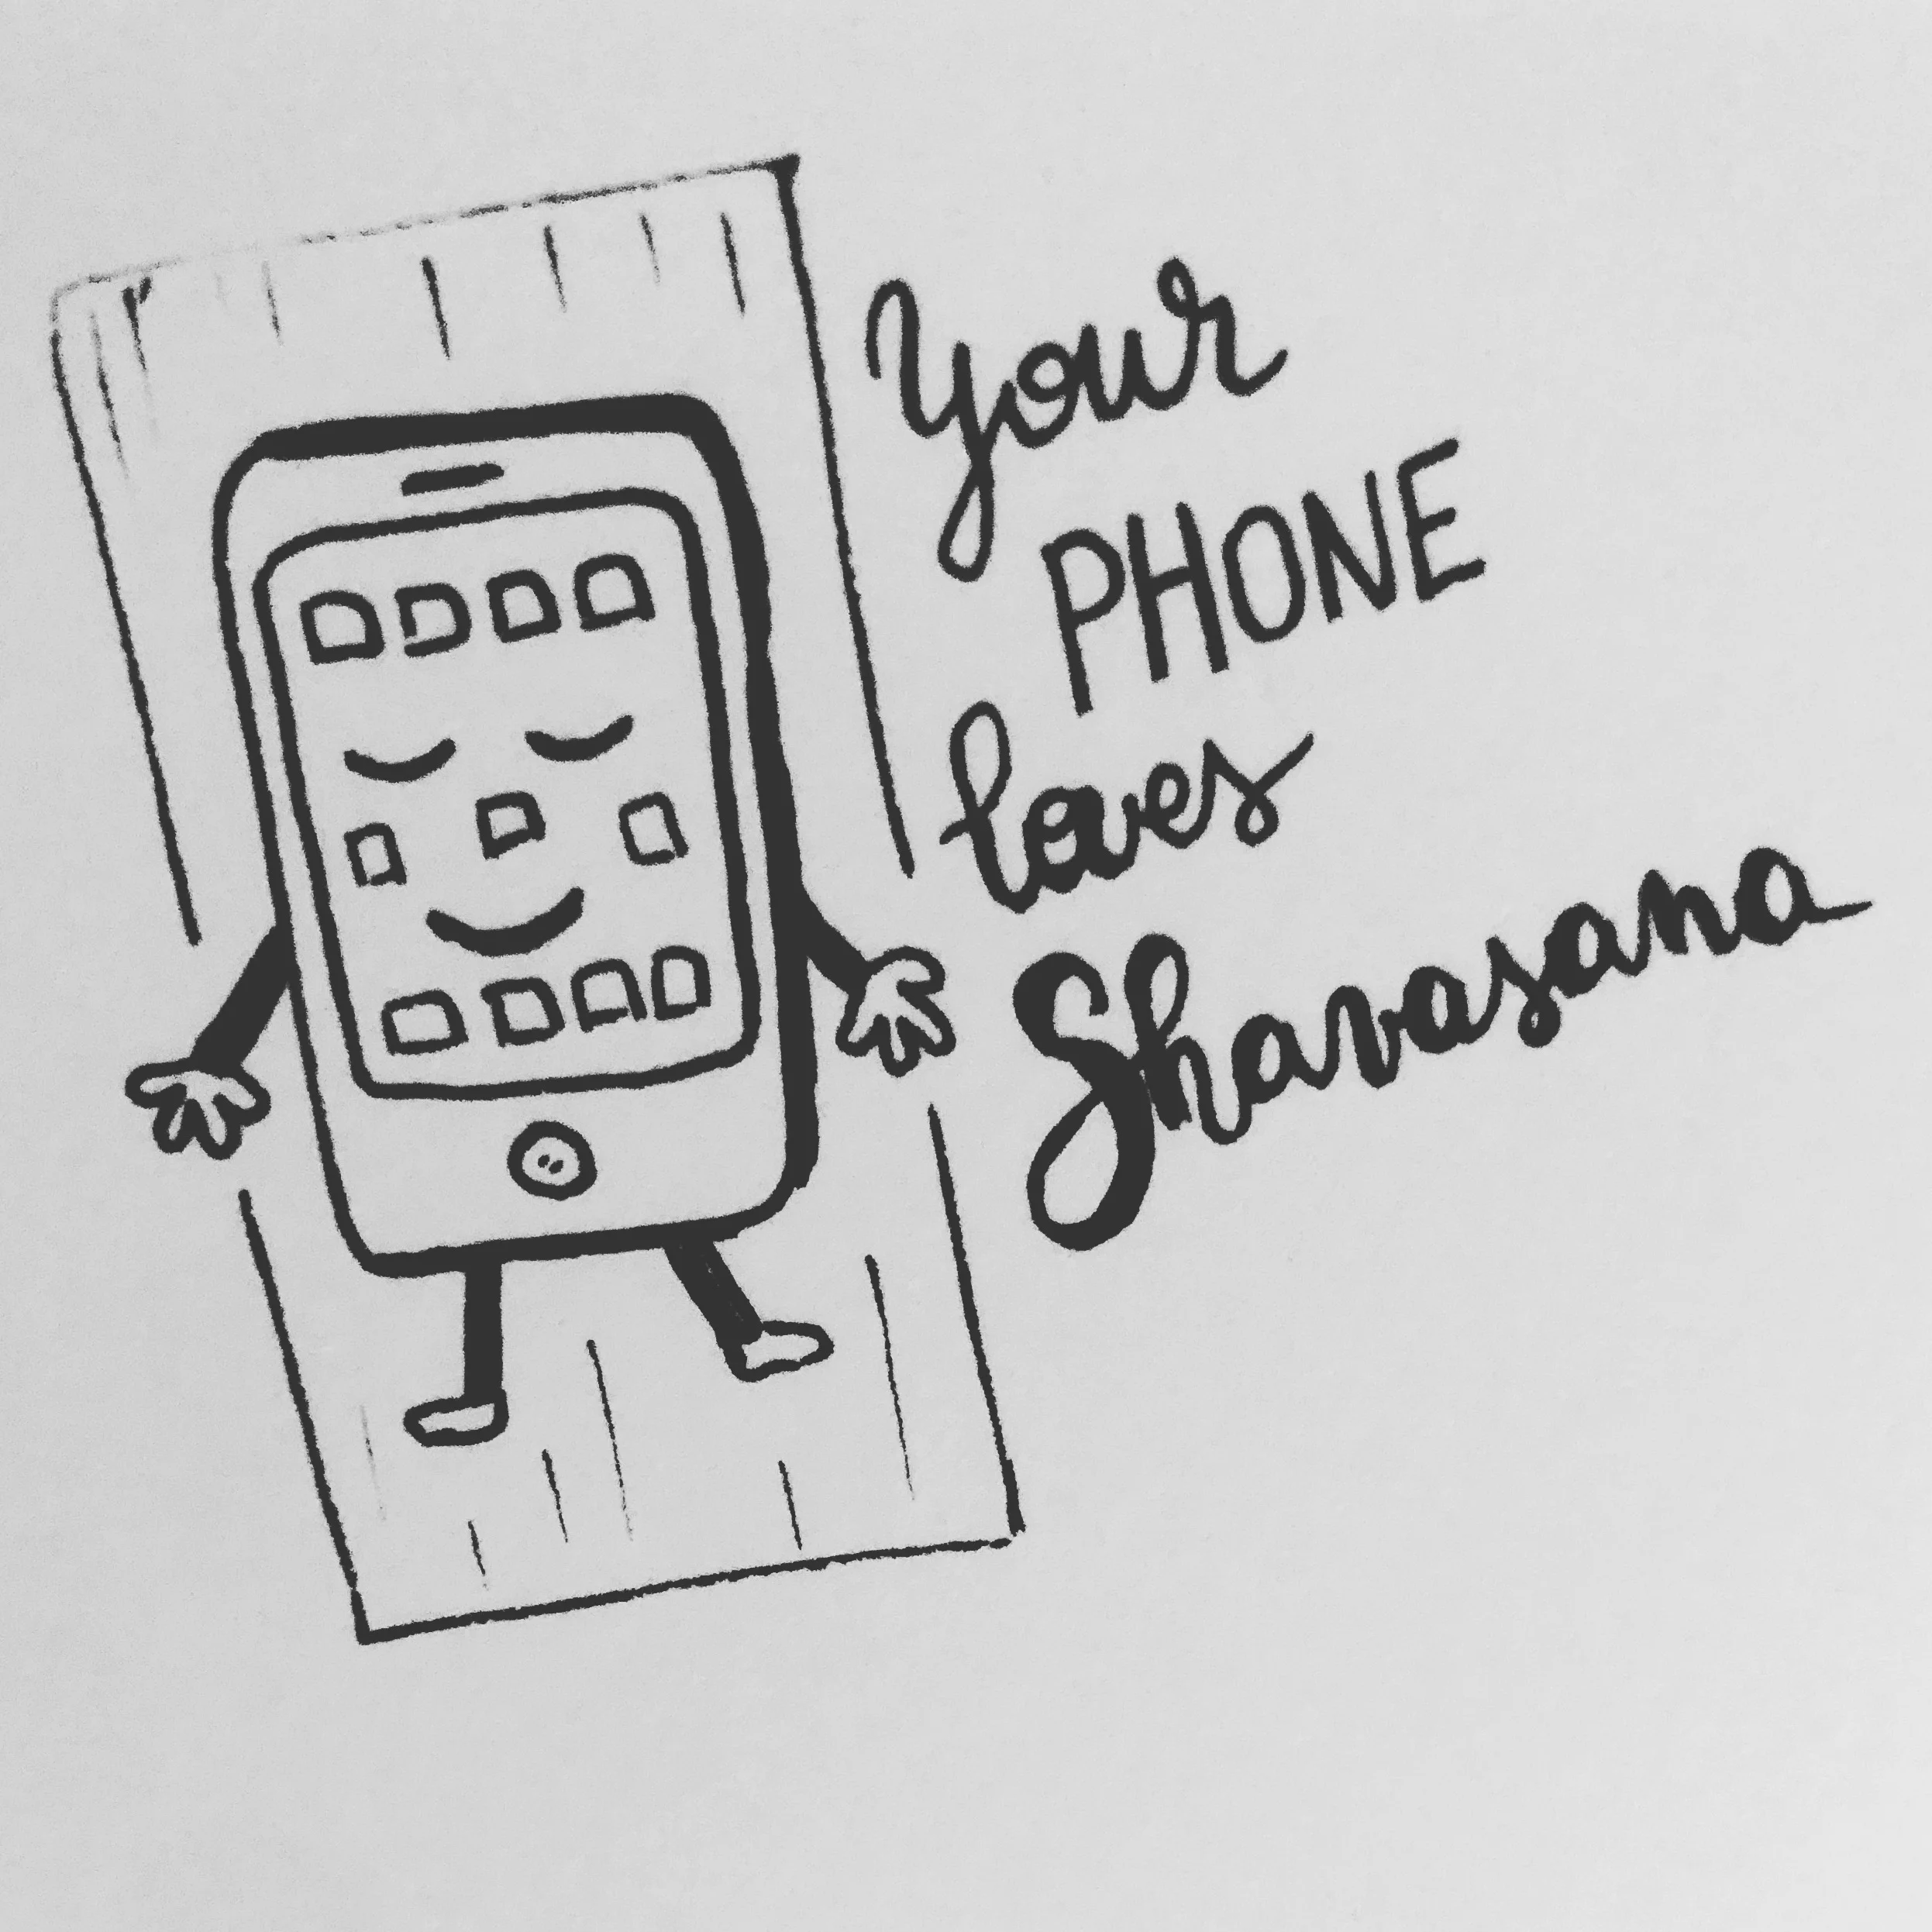 Your
PHONE
loves
Shavasana